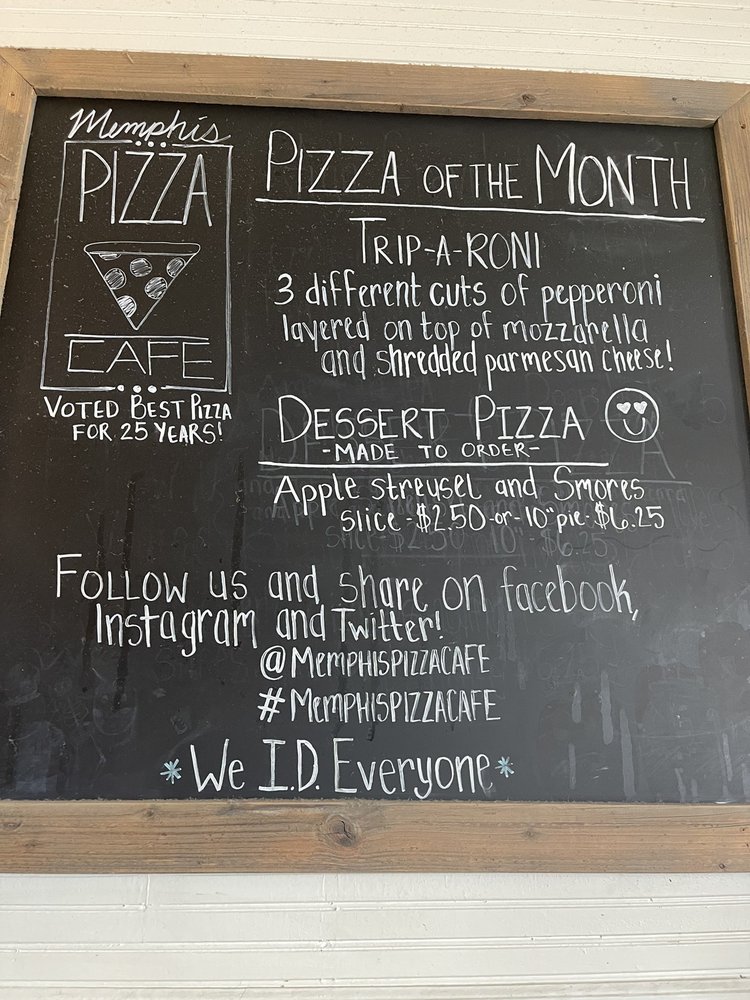 Memphis
PIZZA
CAFE
VOTED BEST PIZZA
FOR 25 YEARS!
PIZZA OF THE MONTH
TRIP-A-RONI
3 different cuts of pepperoni
layered on top of mozzarella
and shredded parmesan cheese!
DESSERT PIZZA
-MADE TO ORDER-
Apple streusel and Smores
slice-$2.50-or-10"pie-$6.25
slice-$2.50 10" $6.25
FOLLOW us and share on facebook,
Instagram and Twitter!
@MEMPHISPIZZACAFE
#MEMPHISPIZZACAFE
*We I.D. Everyone*